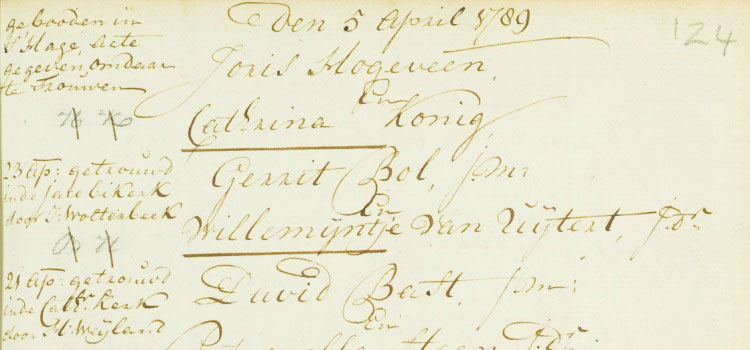 Den 5 April 1789
124
gebooden in
s'Hage, acte
gegeven, om daar
te Trouwen
Joris Hogeveen,
En
Cathrina Konig
23 ap: getrouwd
inde Jacobikerk
door
Gerrit Bol, j:m:
En
Willemijntje van Uijtert, j:d:
21 ap: getrouwd
inde Cath: kerk
door H: Weyland
David Bast j:m:
En